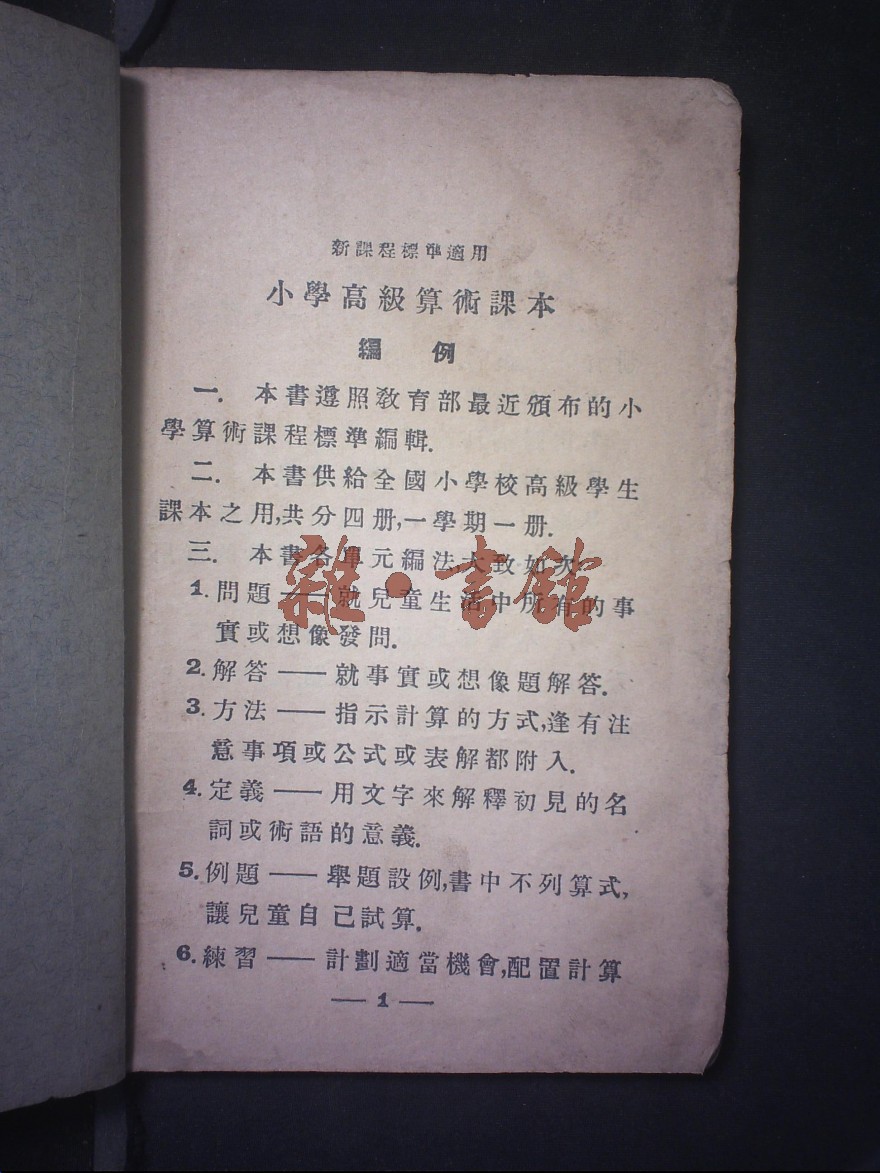 新課程標準適用
小學高級算術課本
編例
一. 本書遵照教育部最近頒布的小
學算術課程標準編輯.
二. 本書供給全國小學校高級學生
課本之用,共分四册,一學期一册.
三. 本書各單元編法,大致如次.
1. 問題——就兒童生活中所有的事
實或想像發問.
2. 解答——就事實或想像題解答.
3. 方法——指示計算的方式,逢有注
意事項或公式或表解都附入.
4. 定義——用文字來解釋初見的名
詞或術語的意義.
5. 例題——舉題設例,書中不列算式,
讓兒童自己試算.
6. 練習——計劃適當機會,配置計算
—1—
雜·書館